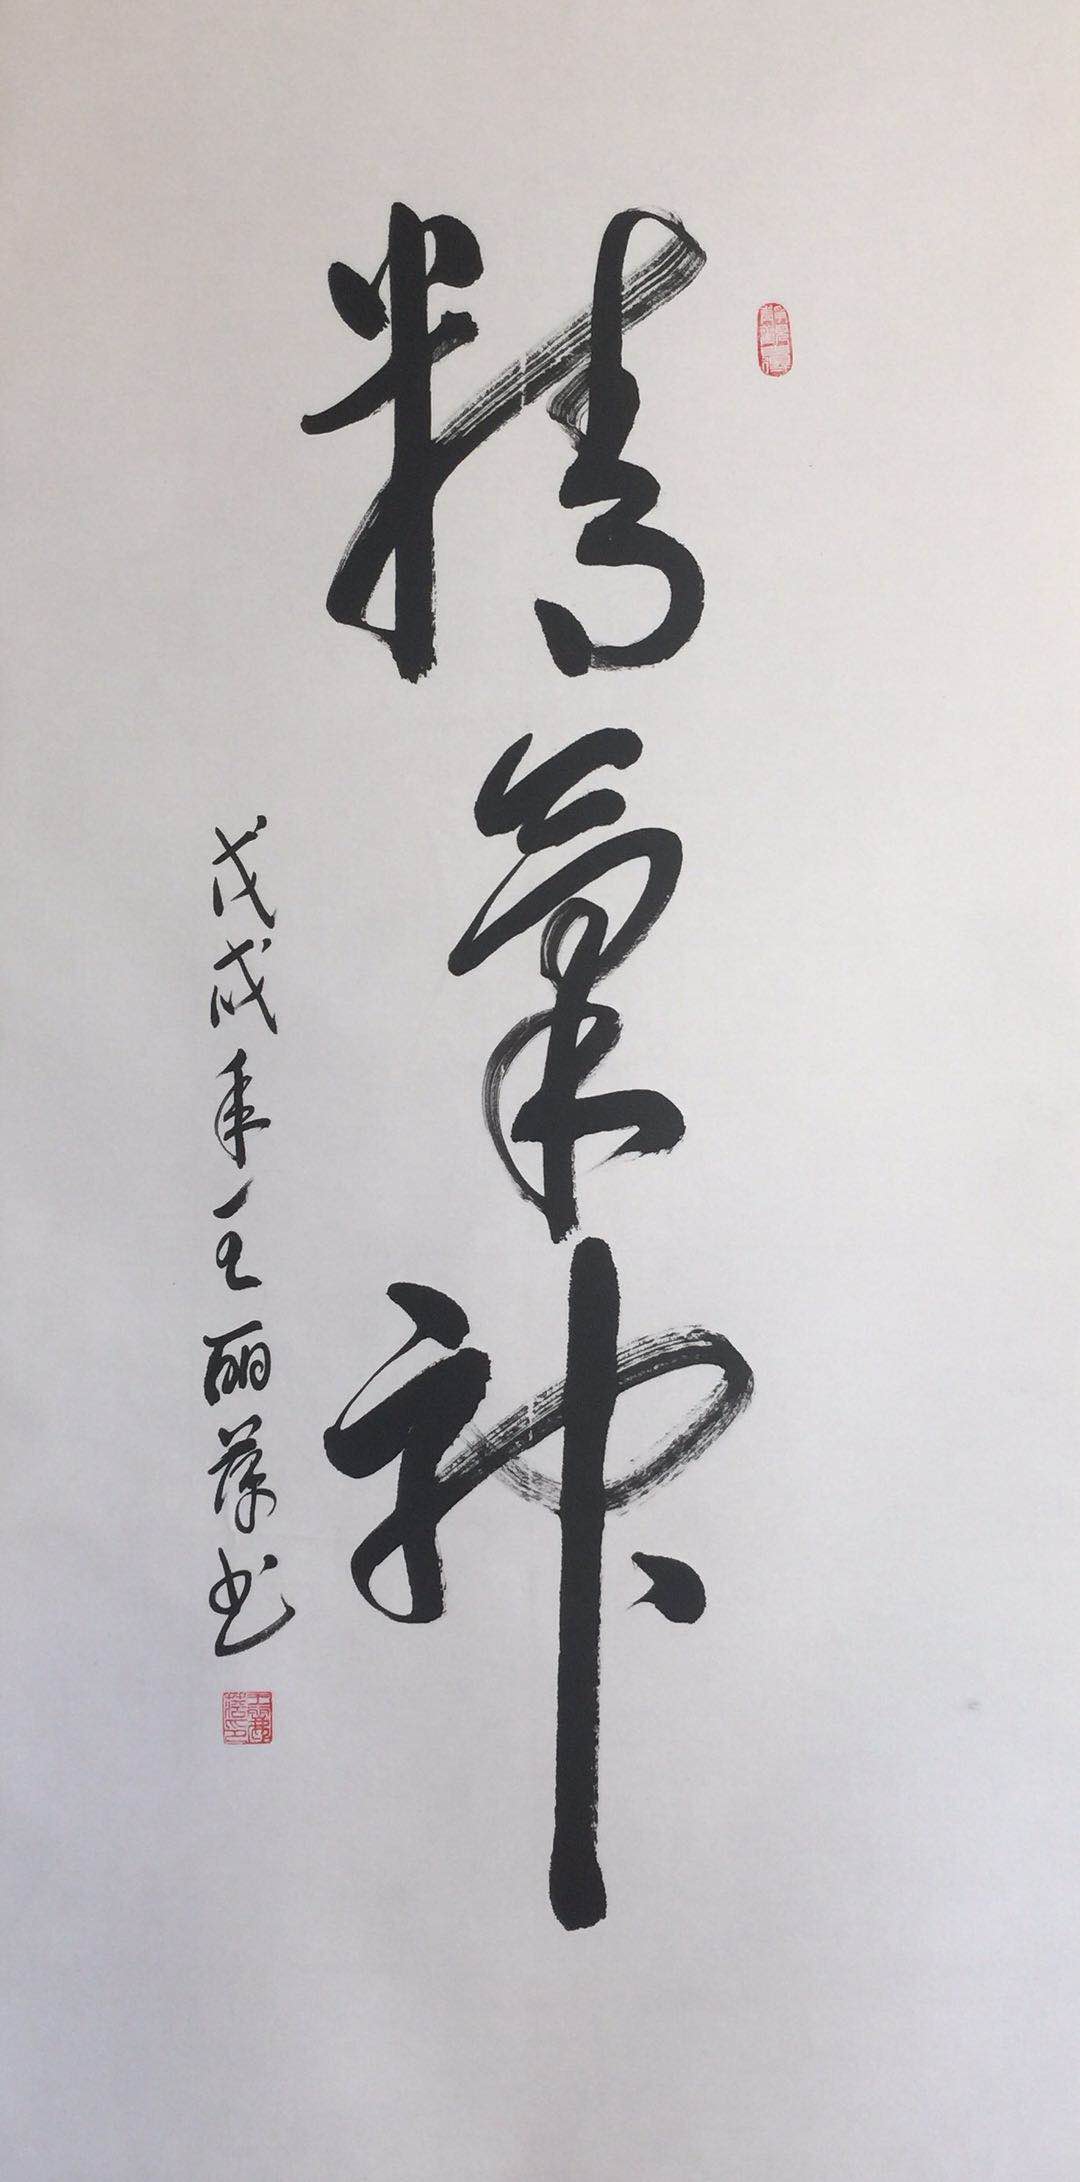 精氣神
戊戌年王丽萍书